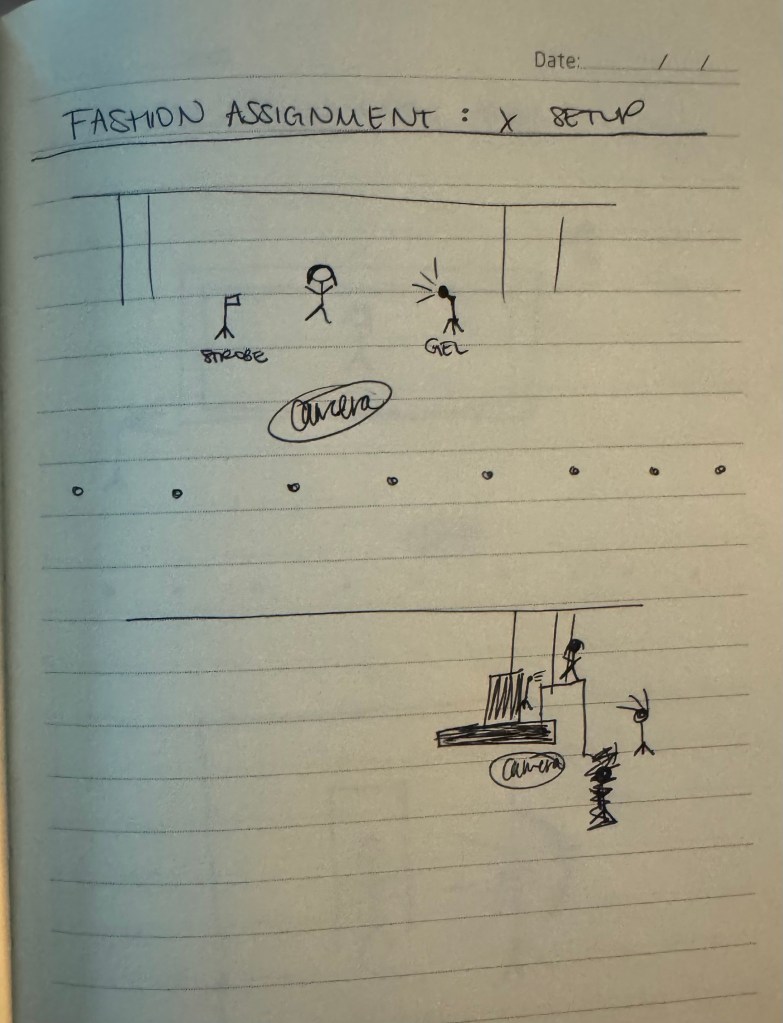 Date: / /
FASHION ASSIGNMENT : X SETUP
STROBE
GEL
Camera
Camera